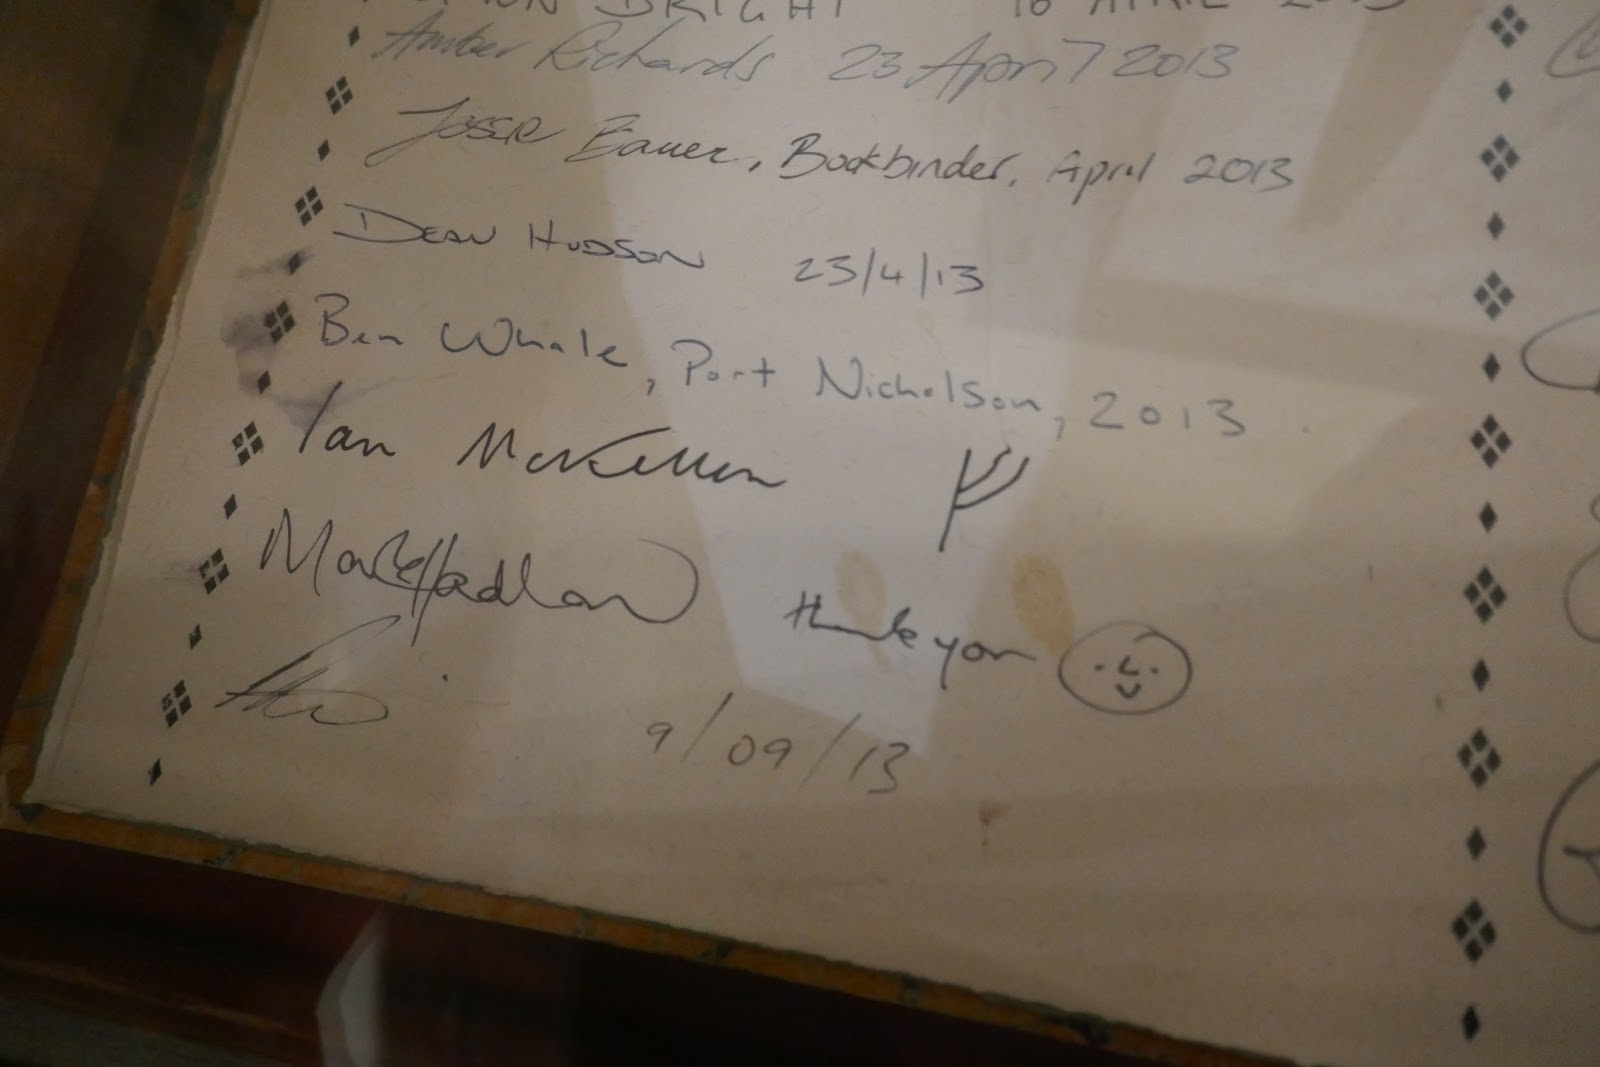 BRIGHT 16 APRIL 2013
Amber Richards 23 April 2013
Jesse Bauer, Bookbinder, April 2013
DEAN HUDSON 23/4/13
Ben Whale, Port Nicholson, 2013
Ian McKellen ᚠ
Mark Hadlow thank you
9/09/13